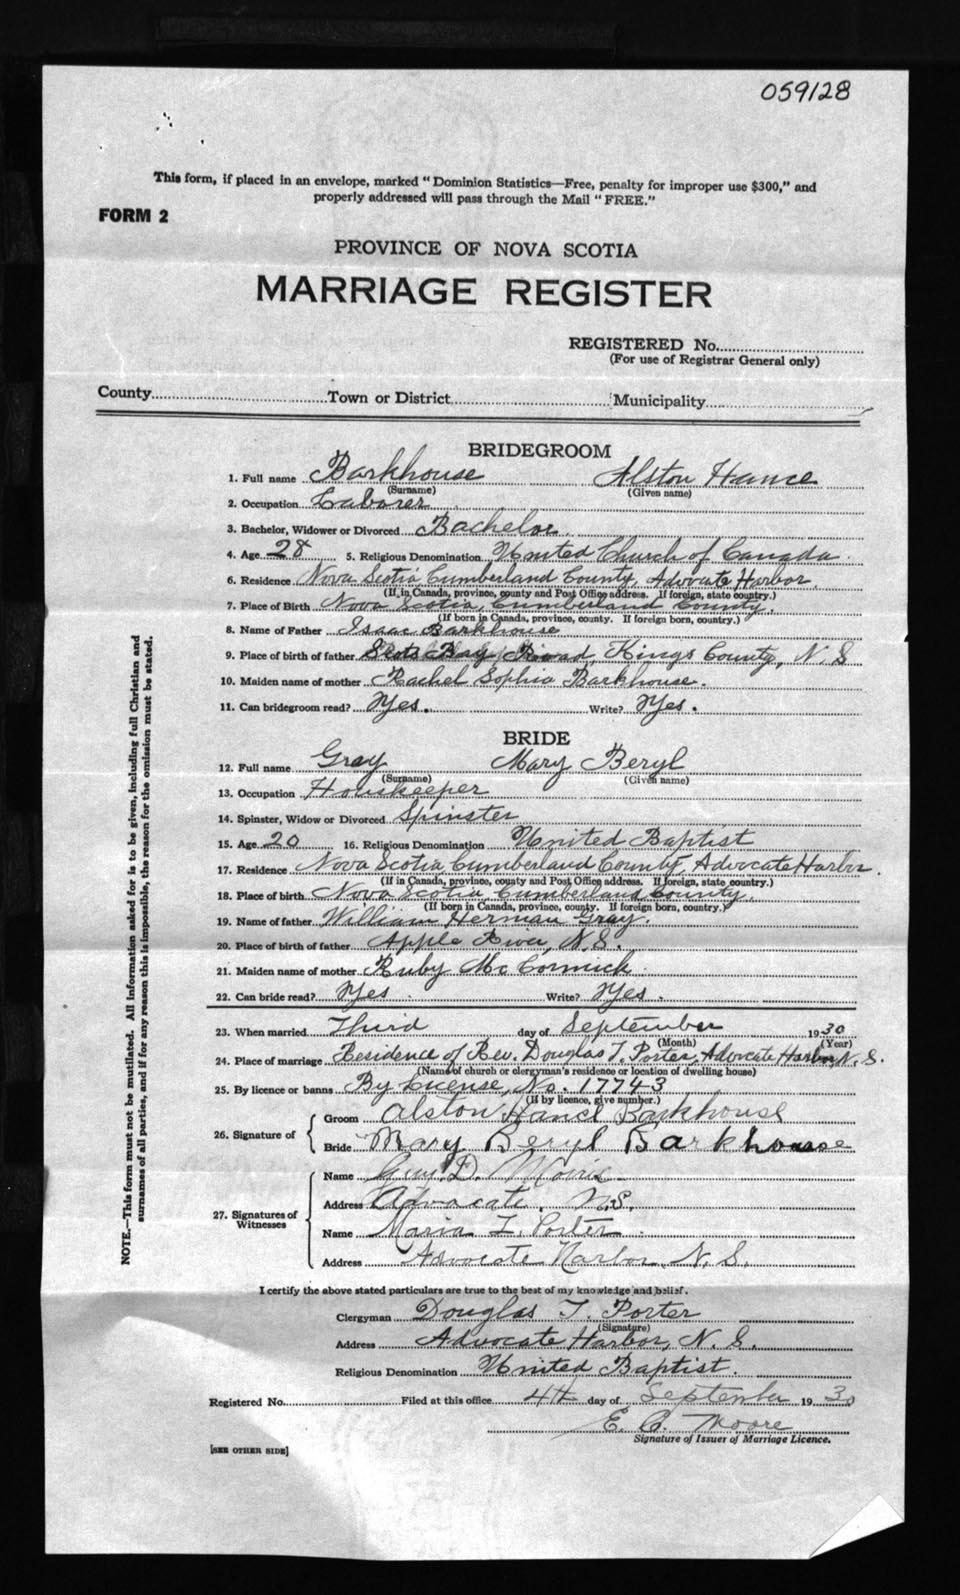 059128
This form, if placed in an envelope, marked "Dominion Statistics—Free, penalty for improper use $300," and
properly addressed will pass through the Mail "FREE."
FORM 2
PROVINCE OF NOVA SCOTIA
MARRIAGE REGISTER
REGISTERED No.
(For use of Registrar General only)
County Town or District Municipality
BRIDEGROOM
1. Full name Barkhouse Alston Hance
(Surname) (Given name)
2. Occupation Laborer
3. Bachelor, Widower or Divorced Bachelor
4. Age 28 5. Religious Denomination United Church of Canada
6. Residence Nova Scotia, Cumberland County, Advocate Harbor.
(If in Canada, province, county and Post Office address. If foreign, state country.)
7. Place of Birth Nova Scotia, Cumberland County.
(If born in Canada, province, county. If foreign born, country.)
8. Name of Father Isaac Barkhouse
9. Place of birth of father Scots Bay Road, Kings County, N. S
10. Maiden name of mother Rachel Sophia Barkhouse.
11. Can bridegroom read? Yes. Write? Yes.
BRIDE
12. Full name Gray Mary Beryl
(Surname) (Given name)
13. Occupation Houskeeper
14. Spinster, Widow or Divorced Spinster
15. Age 20 16. Religious Denomination United Baptist
17. Residence Nova Scotia, Cumberland County, Advocate Harbor.
(If in Canada, province, county and Post Office address. If foreign, state country.)
18. Place of birth Nova Scotia, Cumberland County.
(If born in Canada, province, county. If foreign born, country.)
19. Name of father William Herman Gray.
20. Place of birth of father Apple River, N.S.
21. Maiden name of mother Ruby McCormick
22. Can bride read? Yes. Write? Yes.
23. When married Third day of September 1930
(Month) (Year)
24. Place of marriage Residence of Rev. Douglas T. Porter, Advocate Harbor, N. S.
(Name of church or clergyman's residence or location of dwelling house)
25. By licence or banns By License, No. 17743
(If by licence, give number.)
26. Signature of
Groom Alston Hance Barkhouse
Bride Mary Beryl Barkhouse
27. Signatures of Witnesses
Name D. Morris
Address Advocate, N.S.
Name Maria L. Porter
Address Advocate Harbor, N. S.
I certify the above stated particulars are true to the best of my knowledge and belief.
Clergyman Douglas T. Porter
(Signature)
Address Advocate Harbor, N. S.
Religious Denomination United Baptist.
Registered No. Filed at this office 4th day of September 1930
E. C. Moore
Signature of Issuer of Marriage Licence.
[SEE OTHER SIDE]
NOTE.—This form must not be mutilated. All information asked for is to be given, including full Christian and
surnames of all parties, and if for any reason this is impossible, the reason for the omission must be stated.